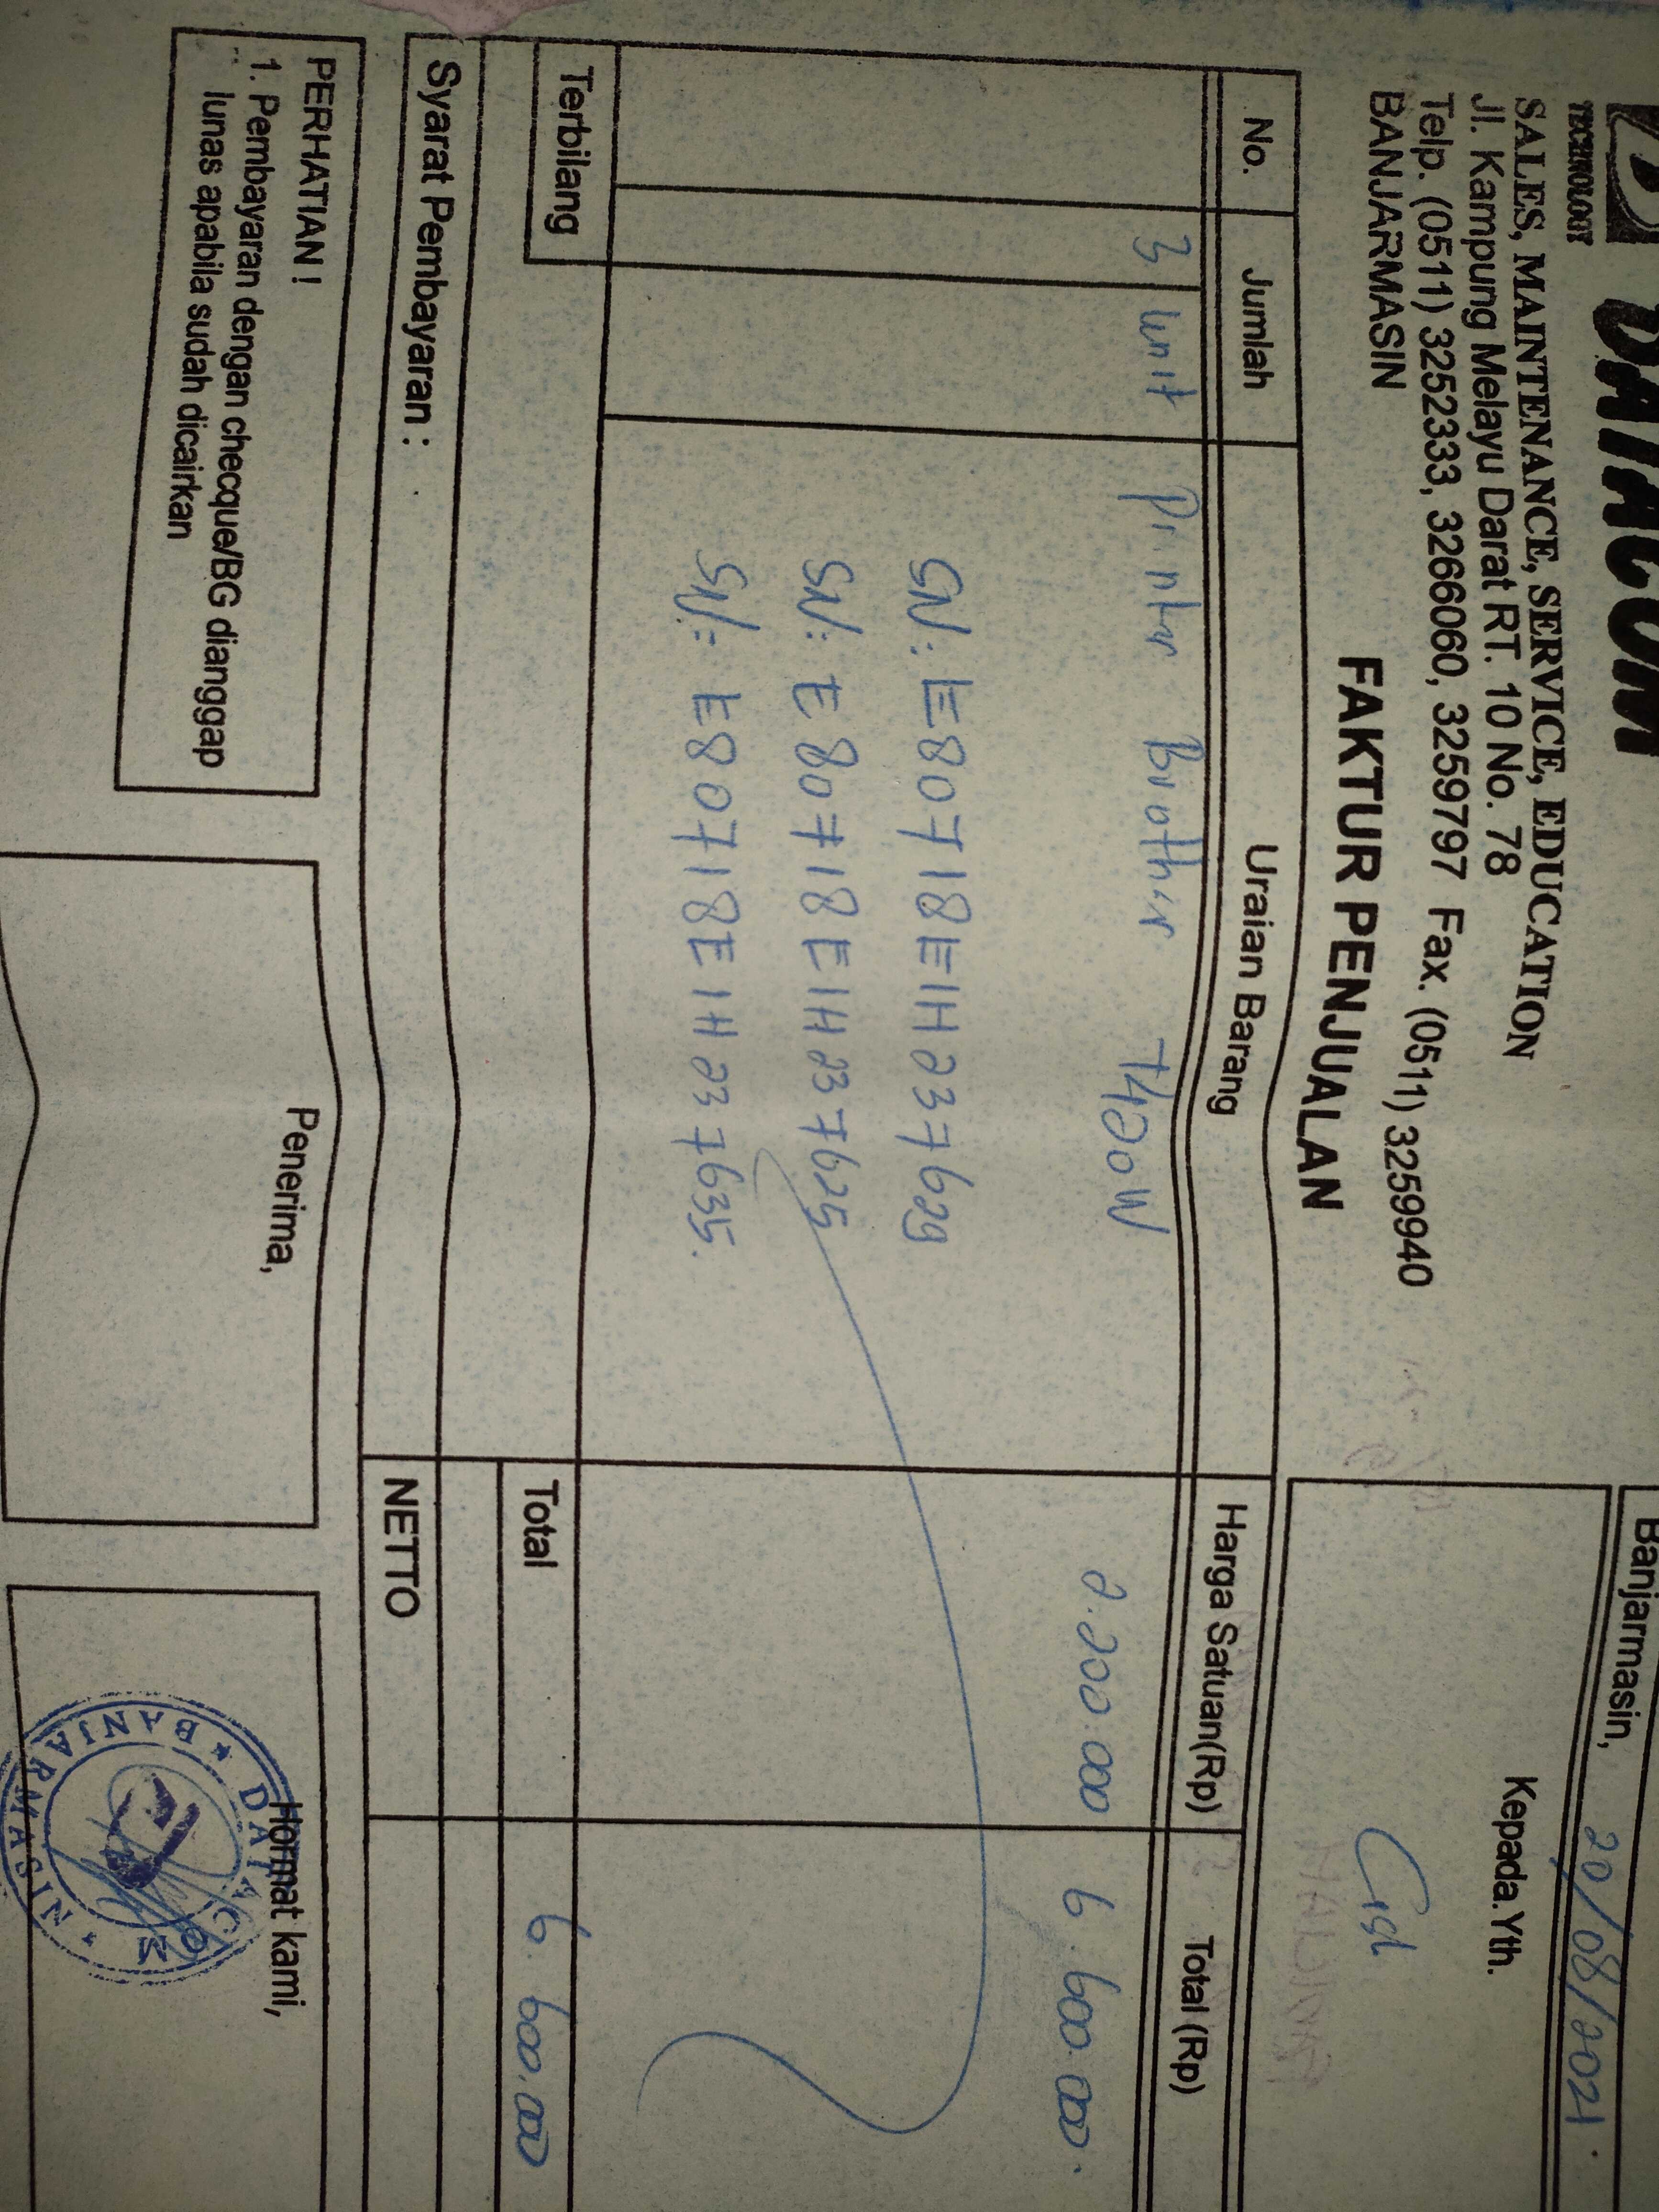 DATACOM
TECHNOLOGY
SALES, MAINTENANCE, SERVICE, EDUCATION
Jl. Kampung Melayu Darat RT. 10 No. 78
Telp. (0511) 3252333, 326060, 3259797 Fax. (0511) 3259940
BANJARMASIN
Banjarmasin, 20/08/2021.
Kepada.Yth.
FAKTUR PENJUALAN
No. Jumlah Uraian Barang Harga Satuan(Rp) Total (Rp)
3 Unit Printer Brother T420W 2.200.000 6.600.000.
SN: E80718E1H237629
SN: E80718E1H237625
SN: E80718E1H237635.
Terbilang Total 6.600.000
Syarat Pembayaran : NETTO
PERHATIAN !
1. Pembayaran dengan checque/BG dianggap
lunas apabila sudah dicairkan
Penerima,
Hormat kami,
* DATACOM * BANJARMASIN